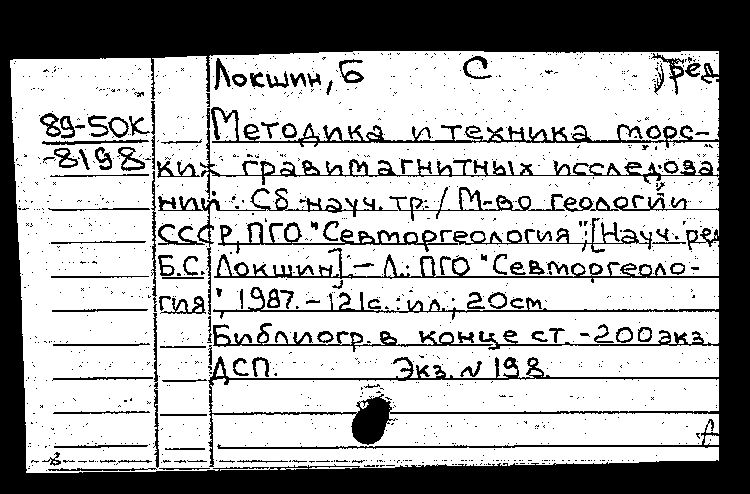 Локшин, Б С ред
89-50К
-8198
Методика и техника морс-
ких гравимагнитных исследова
ний : Сб науч. тр. / М-во геологии
СССР, ПГО "Севморгеология"; [Науч. ред
Б.С. Локшин]. - Л.: ПГО "Севморгеоло-
гия", 1987. - 121с. : ил.; 20см.
Библиогр. в конце ст. - 200экз.
ДСП. Экз. № 198.